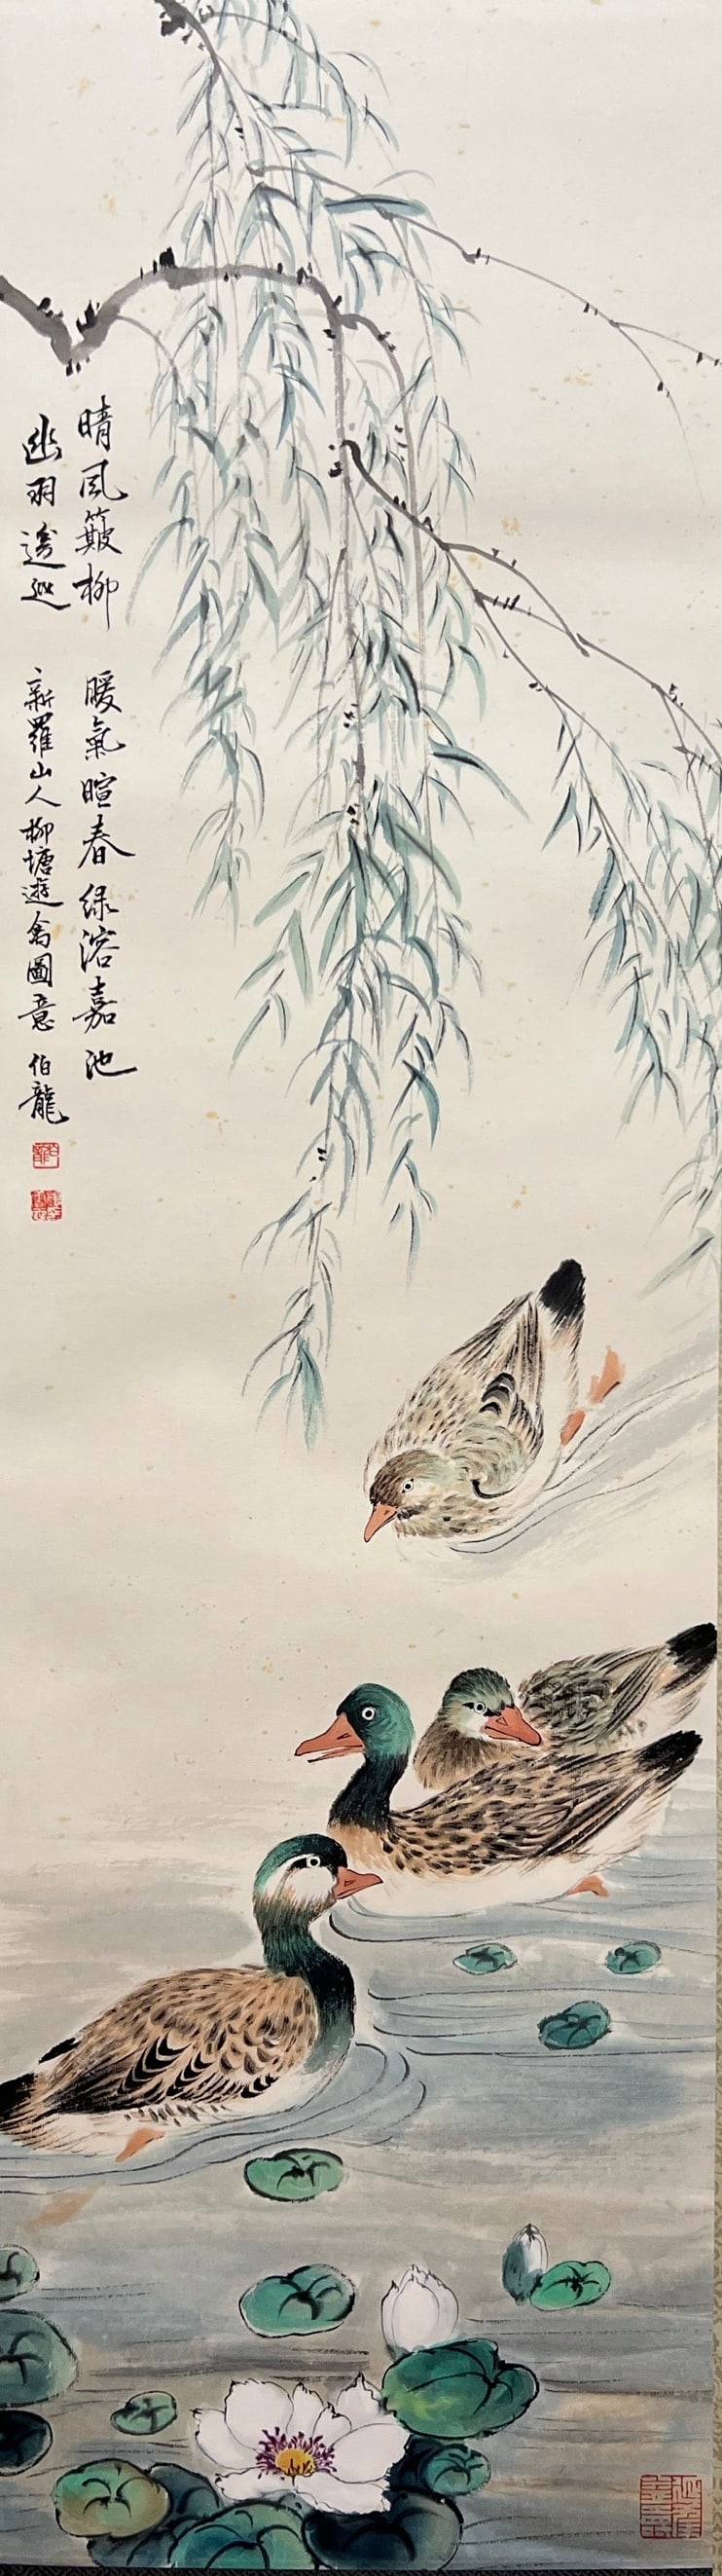 晴風簸柳 暖氣暄春 綠溶嘉池
幽羽邊巡 新羅山人柳塘遊禽圖意 伯龍